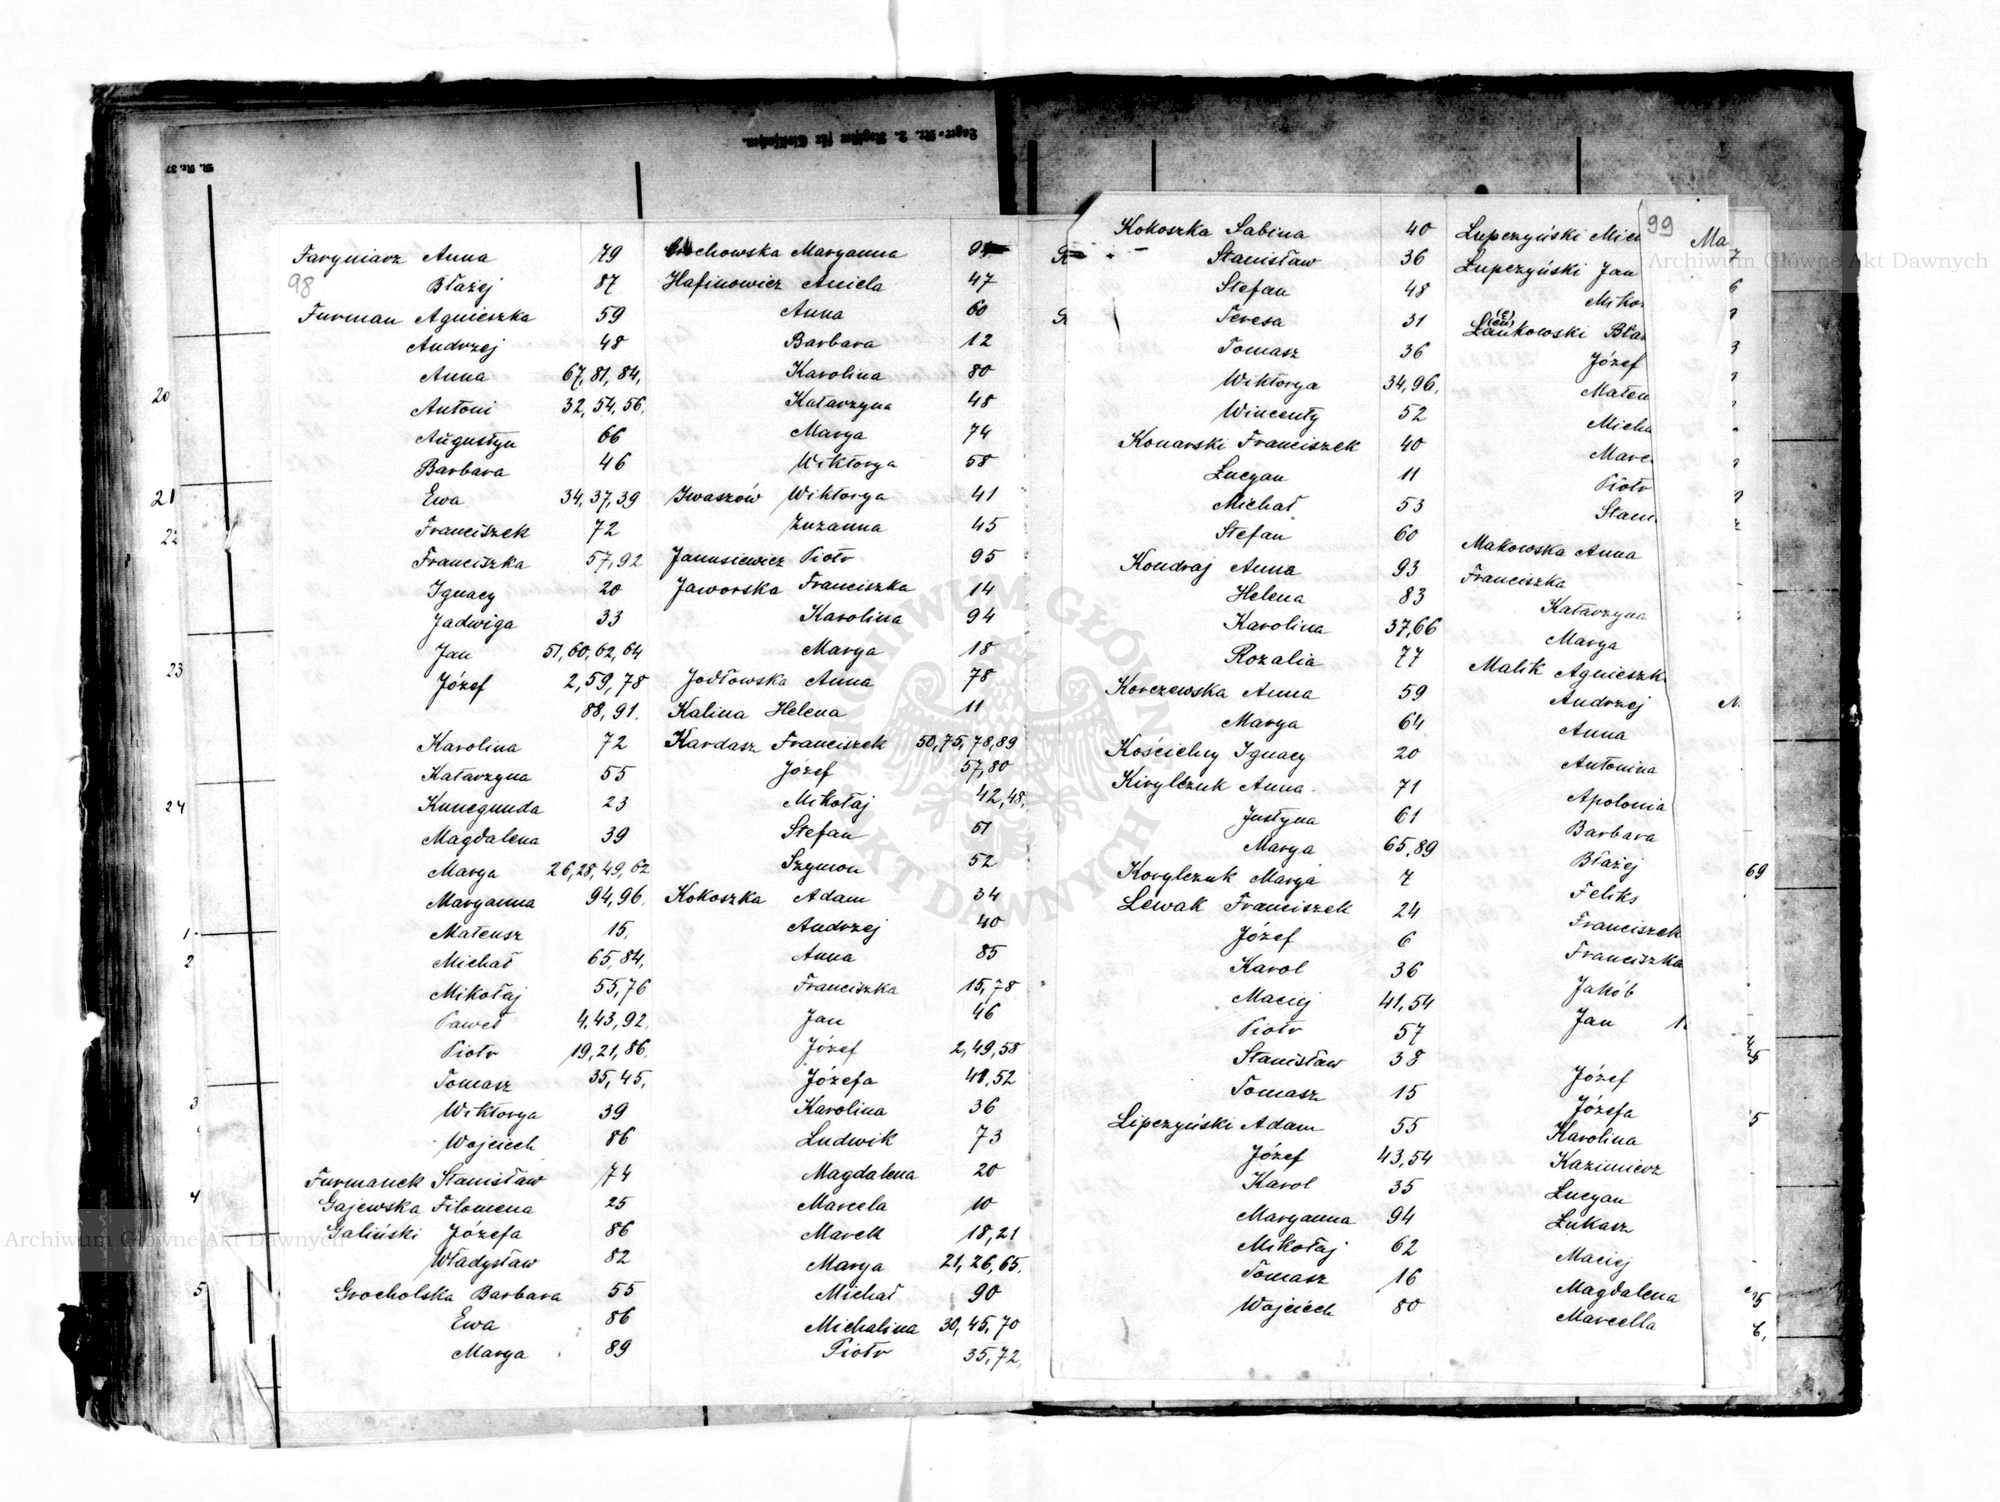 Faryniarz Anna 79
98
Błażej 87
Furman Agnieszka 59
Andrzej 48
Anna 67, 81, 84,
Antoni 32, 54, 56,
Augustyn 66
Barbara 46
Ewa 34, 37, 39
Franciszek 72
Franciszka 57, 92
Ignacy 20
Jadwiga 33
Jan 51, 60, 62, 64
Józef 2, 59, 78
88, 91.
Karolina 72
Katarzyna 55
Kunegunda 23
Magdalena 39
Marya 26, 28, 49, 62
Maryanna 94, 96.
Mateusz 15.
Michał 65, 84,
Mikołaj 55, 76
Paweł 4, 43, 92.
Piotr 19, 21, 86.
Tomasz 35, 45,
Wiktorya 39
Wojciech 86
Furmanek Stanisław 74
Gajewska Filomena 25
Galiński Józefa 86
Władysław 82
Grocholska Barbara 55
Ewa 86
Marya 89
Maryanna
Hafinowicz Aniela 47
Anna 60
Barbara 12
Karolina 80
Katarzyna 48
Marya 74
Wiktorya 58
Iwaszów Wiktorya 41
Zuzanna 45
Janusiewicz Piotr 95
Jaworska Franciszka 14
Karolina 94
Marya 18
Jodłowska Anna 78
Kalina Helena 11
Kardasz Franciszek 50, 75, 78, 89
Józef 57, 80
Mikołaj 42, 48,
Stefan 51
Szymon 52
Kokoszka Adam 34
Andrzej 40
Anna 85
Franciszka 15, 78
Jan 46
Józef 2, 49, 58
Józefa 48, 52
Karolina 36
Ludwik 73
Magdalena 20
Marcela 10
Marek 18, 21
Marya 21, 26, 65.
Michał 90
Michalina 30, 45, 70
Piotr 35, 72.
Kokoszka Sabina 40
Stanisław 36
Stefan 48
Teresa 31
Tomasz 36
Wiktorya 34, 96.
Wincenty 52
Konarski Franciszek 40
Łucyan 11
Michał 53
Stefan 60
Kondraj Anna 93
Helena 83
Karolina 37, 66
Rozalia 77
Korczewska Anna 59
Marya 64
Kościelny Ignacy 20
Kirylczuk Anna 71
Justyna 61
Marya 65, 89
Korylczuk Marya 7
Lewak Franciszek 24
Józef 6
Karol 36
Maciej 41, 54
Piotr 57
Stanisław 38
Tomasz 15
Lipczyński Adam 55
Józef 43, 54
Karol 35
Maryanna 94
Mikołaj 62
Tomasz 16
Wojciech 80
99
Łupczyński Mich
Łupczyński Jan
Miko
Łankowski Bła
Józef
Mateu
Micha
Marc
Piotr
Stani
Makowska Anna
Franciszka
Katarzyna
Marya
Malik Agnieszk
Andrzej
Anna
Antonina
Apolonia
Barbara
Błażej
Feliks
Franciszek
Franciszka
Jakób
Jan 1
Józef
Józefa
Karolina
Kazimierz
Lucyan
Łukasz
Maciej
Magdalena
Marcella
Ma
69
20
21
22
23
24
1
2
3
4
5
Archiwum Główne Akt Dawnych
Archiwum Główne Akt Dawnych
ARCHIWUM GŁÓWNE AKT DAWNYCH